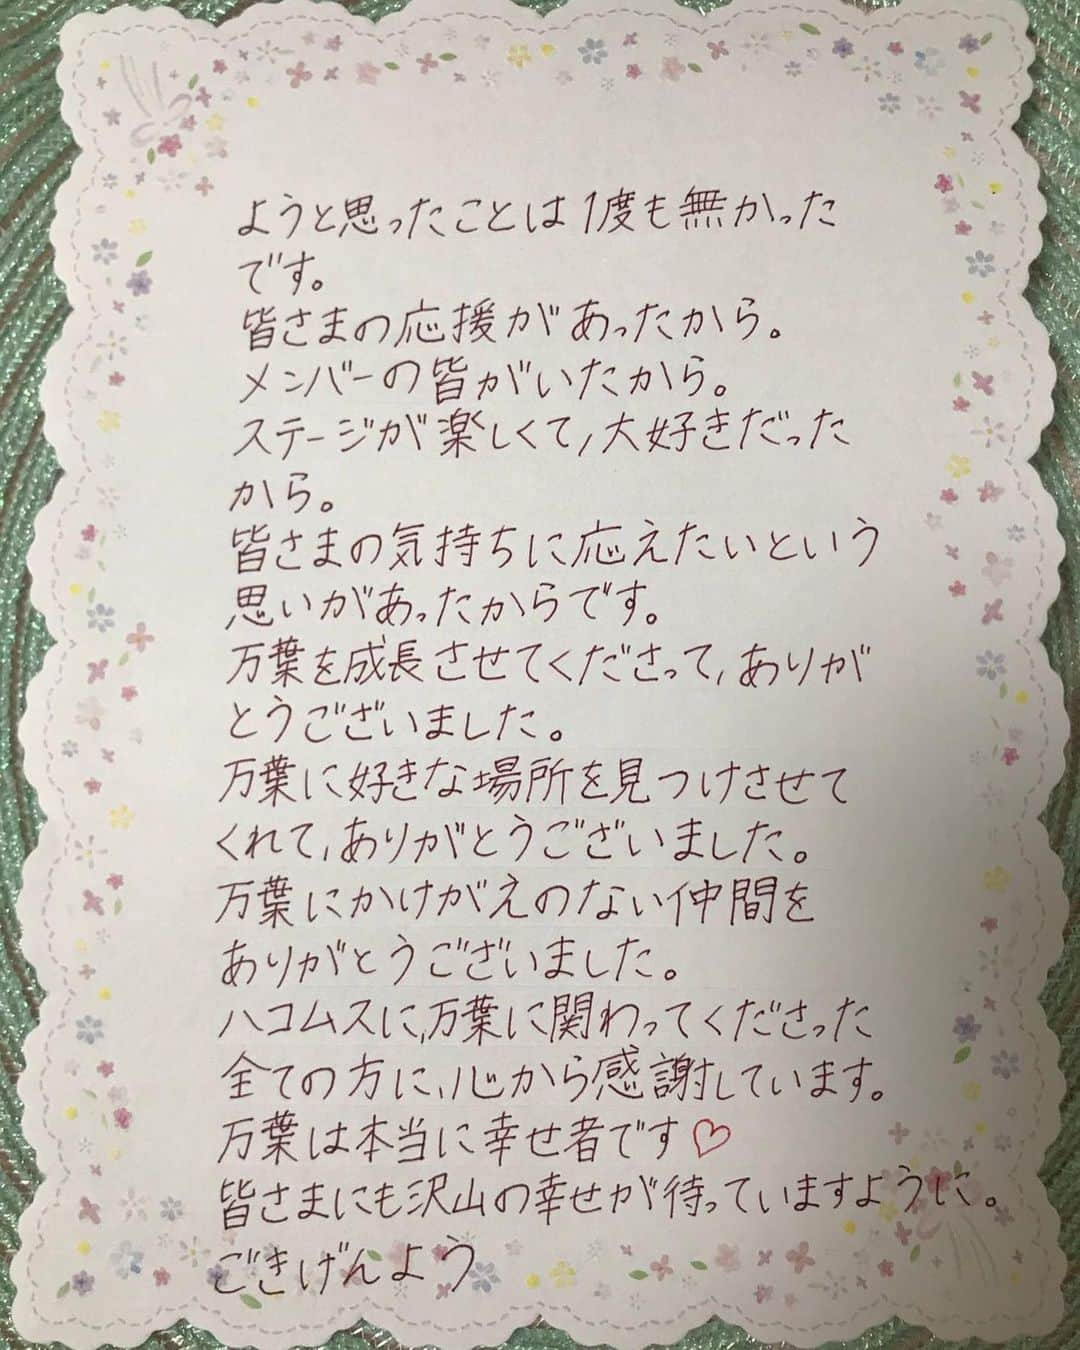 ようと思ったことは1度も無かった
です。
皆さまの応援があったから。
メンバーの皆がいたから。
ステージが楽しくて、大好きだった
から。
皆さまの気持ちに応えたいという
思いがあったからです。
万葉を成長させてくださって、ありが
とうございました。
万葉に好きな場所を見つけさせて
くれて、ありがとうございました。
万葉にかけがえのない仲間を
ありがとうございました。
ハコムスに、万葉に関わってくださった
全ての方に、心から感謝しています。
万葉は本当に幸せ者です♡
皆さまにも沢山の幸せが待っていますように。
ごきげんよう